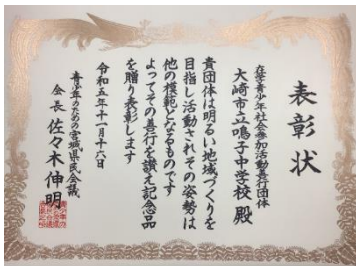 表彰状
在学青少年社会参加活動善行団体
大崎市立鳴子中学校 殿
貴団体は明るい地域づくりを
目指し活動されその姿勢は
他の模範となるものです
よってその善行を讃え記念品
を贈り表彰します
令和五年十一月十六日
青少年のための宮城県民会議
会長 佐々木伸明